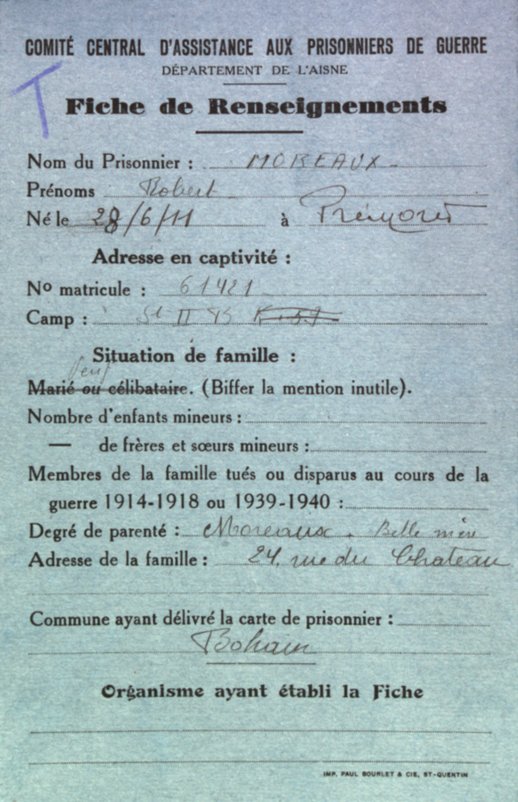 COMITÉ CENTRAL D'ASSISTANCE AUX PRISONNIERS DE GUERRE
DÉPARTEMENT DE L'AISNE
T
Fiche de Renseignements
Nom du Prisonnier : MOREAUX
Prénoms Robert
Né le 28/6/11 à Prémont
Adresse en captivité :
No matricule : 61421
Camp : St II B
Situation de famille :
Veuf
Marié ou célibataire. (Biffer la mention inutile).
Nombre d'enfants mineurs :
— de frères et sœurs mineurs :
Membres de la famille tués ou disparus au cours de la
guerre 1914-1918 ou 1939-1940 :
Degré de parenté : Moreaux. Belle mère
Adresse de la famille : 24, rue du Chateau
Commune ayant délivré la carte de prisonnier :
Bohain
Organisme ayant établi la Fiche
IMP. PAUL BOURLET & CIE, ST-QUENTIN